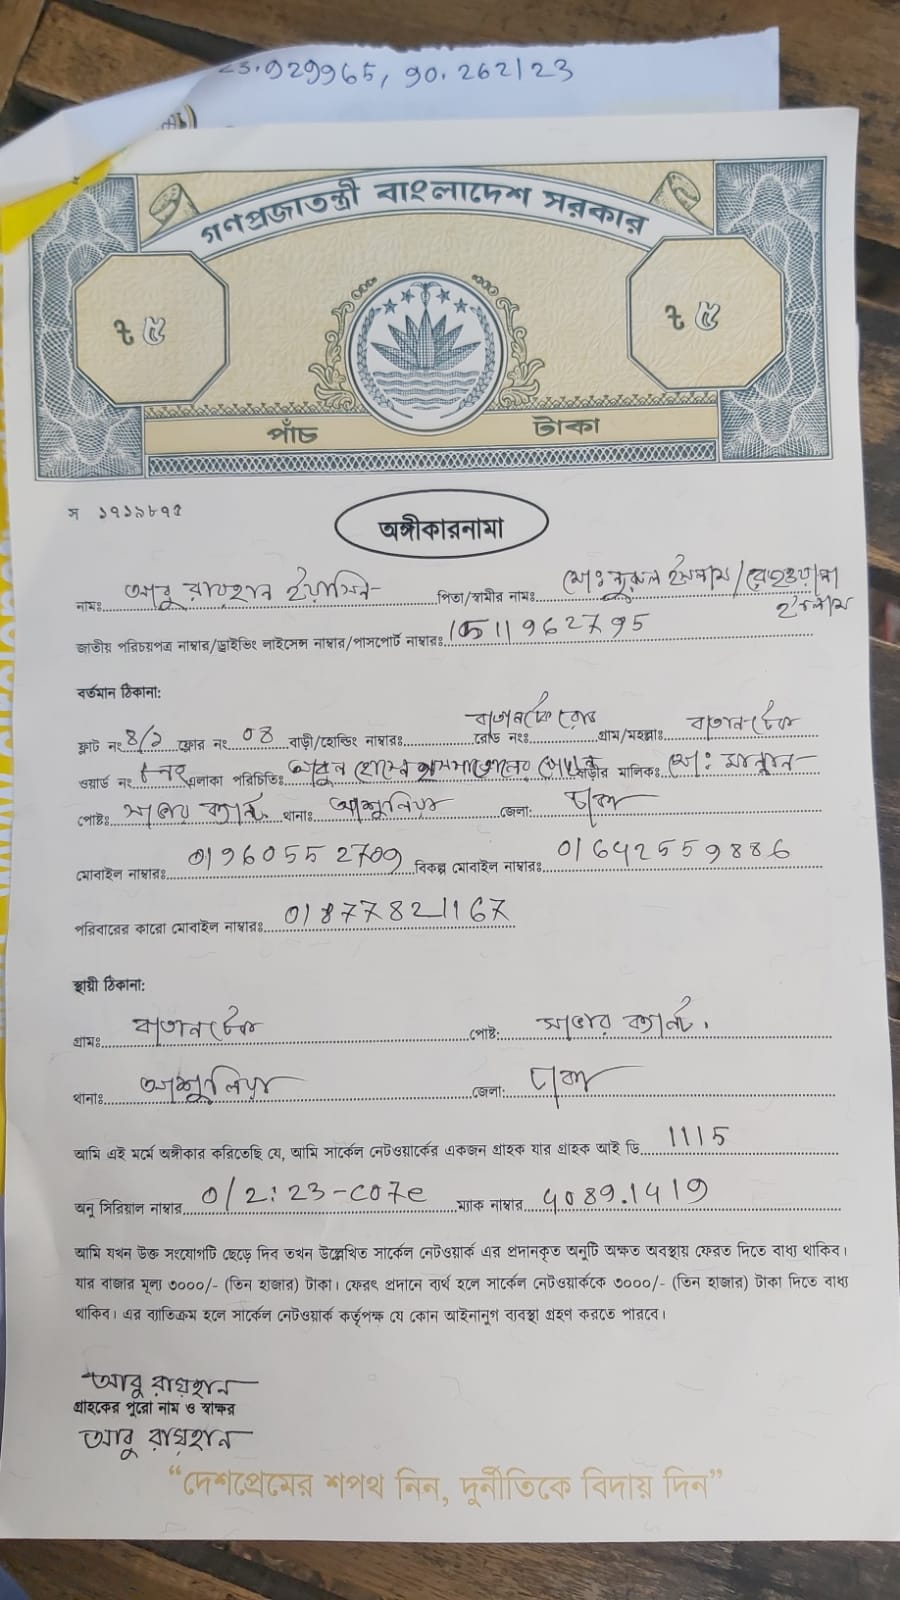 23.929965, 90.262123
গণপ্রজাতন্ত্রী বাংলাদেশ সরকার
৳ ৫ ৳ ৫
পাঁচ টাকা
স ১৭১৯৮৭৫
অঙ্গীকারনামা
নামঃ আবু রায়হান ইয়াসিন পিতা/স্বামীর নামঃ মোঃ নুরুল ইসলাম / ইসলাম
জাতীয় পরিচয়পত্র নাম্বার/ড্রাইভিং লাইসেন্স নাম্বার/পাসপোর্ট নাম্বারঃ 1511962795
বর্তমান ঠিকানা:
ফ্লাট নং 8/১ ফ্লোর নং 08 বাড়ী/হোল্ডিং নাম্বারঃ রোড নংঃ বাতানটেক রোড গ্রাম/মহল্লাঃ বাতানটেক
ওয়ার্ড নং এলাকা পরিচিতিঃ আবুল হোসেন বাড়ীর মালিকঃ মোঃ মান্নান
পোষ্টঃ সাভার ক্যান্ট. থানাঃ আশুলিয়া জেলা: ঢাকা
মোবাইল নাম্বারঃ 01960552709 বিকল্প মোবাইল নাম্বারঃ 01642559886
পরিবারের কারো মোবাইল নাম্বারঃ 01877821167
স্থায়ী ঠিকানা:
গ্রামঃ বাতানটেক পোষ্ট: সাভার ক্যান্ট.
থানাঃ আশুলিয়া জেলা: ঢাকা
আমি এই মর্মে অঙ্গীকার করিতেছি যে, আমি সার্কেল নেটওয়ার্কের একজন গ্রাহক যার গ্রাহক আই ডি 1115
অনু সিরিয়াল নাম্বার 0/2:23-C07e ম্যাক নাম্বার 4089.1419
আমি যখন উক্ত সংযোগটি ছেড়ে দিব তখন উল্লেখিত সার্কেল নেটওয়ার্ক এর প্রদানকৃত অনুটি অক্ষত অবস্থায় ফেরত দিতে বাধ্য থাকিব।
যার বাজার মূল্য ৩০০০/- (তিন হাজার) টাকা। ফেরৎ প্রদানে ব্যর্থ হলে সার্কেল নেটওয়ার্ককে ৩০০০/- (তিন হাজার) টাকা দিতে বাধ্য
থাকিব। এর ব্যতিক্রম হলে সার্কেল নেটওয়ার্ক কর্তৃপক্ষ যে কোন আইনানুগ ব্যবস্থা গ্রহণ করতে পারবে।
আবু রায়হান
গ্রাহকের পুরো নাম ও স্বাক্ষর
আবু রায়হান
“দেশপ্রেমের শপথ নিন, দুর্নীতিকে বিদায় দিন”